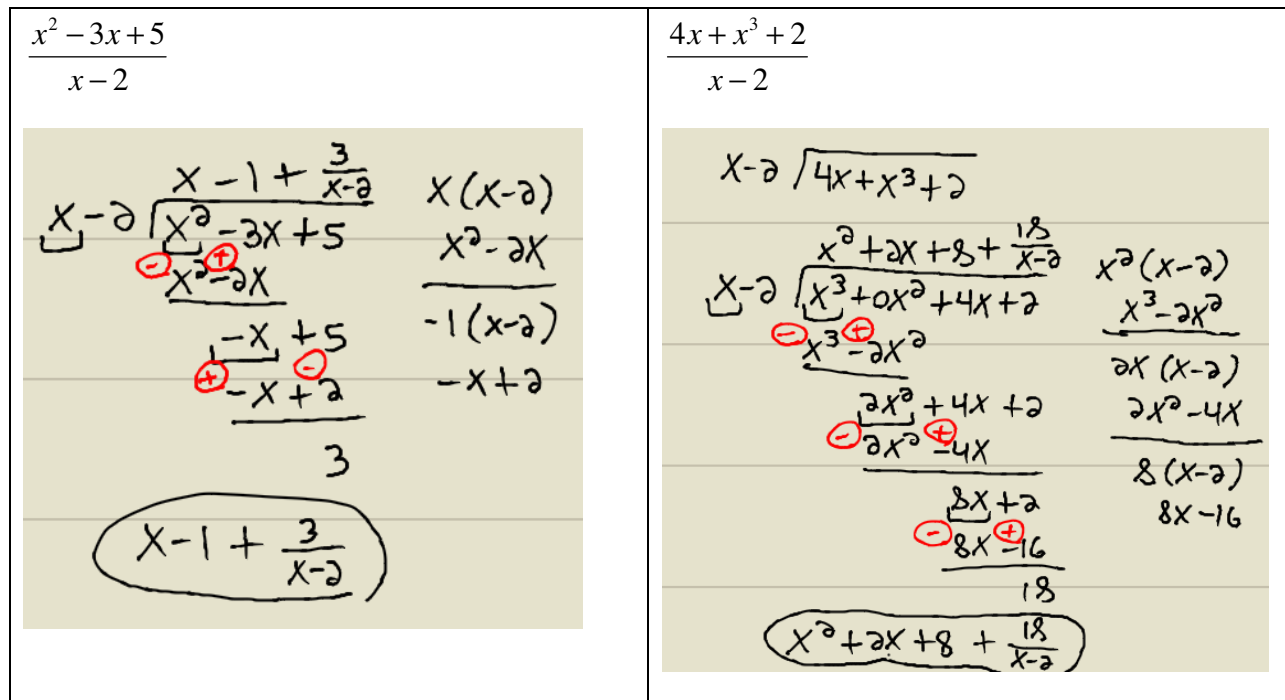 x² − 3x + 5
x − 2
x - 1 + 3/(x-2)
x - 2 x² - 3x + 5
- +
x² - 2x
-x + 5
+ -
-x + 2
3
x - 1 + 3/(x-2)
x(x-2)
x² - 2x
-1(x-2)
-x + 2
4x + x³ + 2
x − 2
x - 2 4x + x³ + 2
x² + 2x + 8 + 18/(x-2)
x - 2 x³ + 0x² + 4x + 2
- +
x³ - 2x²
2x² + 4x + 2
- +
2x² - 4x
8x + 2
- +
8x - 16
18
x² + 2x + 8 + 18/(x-2)
x²(x-2)
x³ - 2x²
2x(x-2)
2x² - 4x
8(x-2)
8x - 16